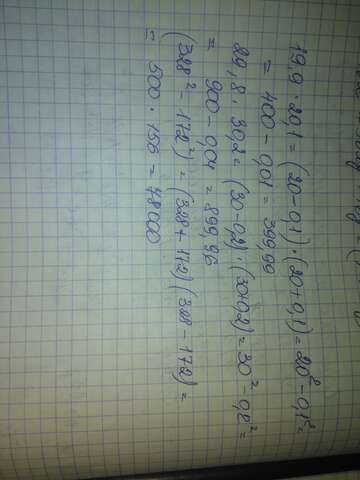 19,9 · 20,1 = (20 - 0,1) · (20 + 0,1) = 20² - 0,1² =
= 400 - 0,01 = 399,99
29,8 · 30,2 = (30 - 0,2) · (30 + 0,2) = 30² - 0,2² =
= 900 - 0,04 = 899,96
(328² - 172²) = (328 + 172) (328 - 172) =
= 500 · 156 = 78000